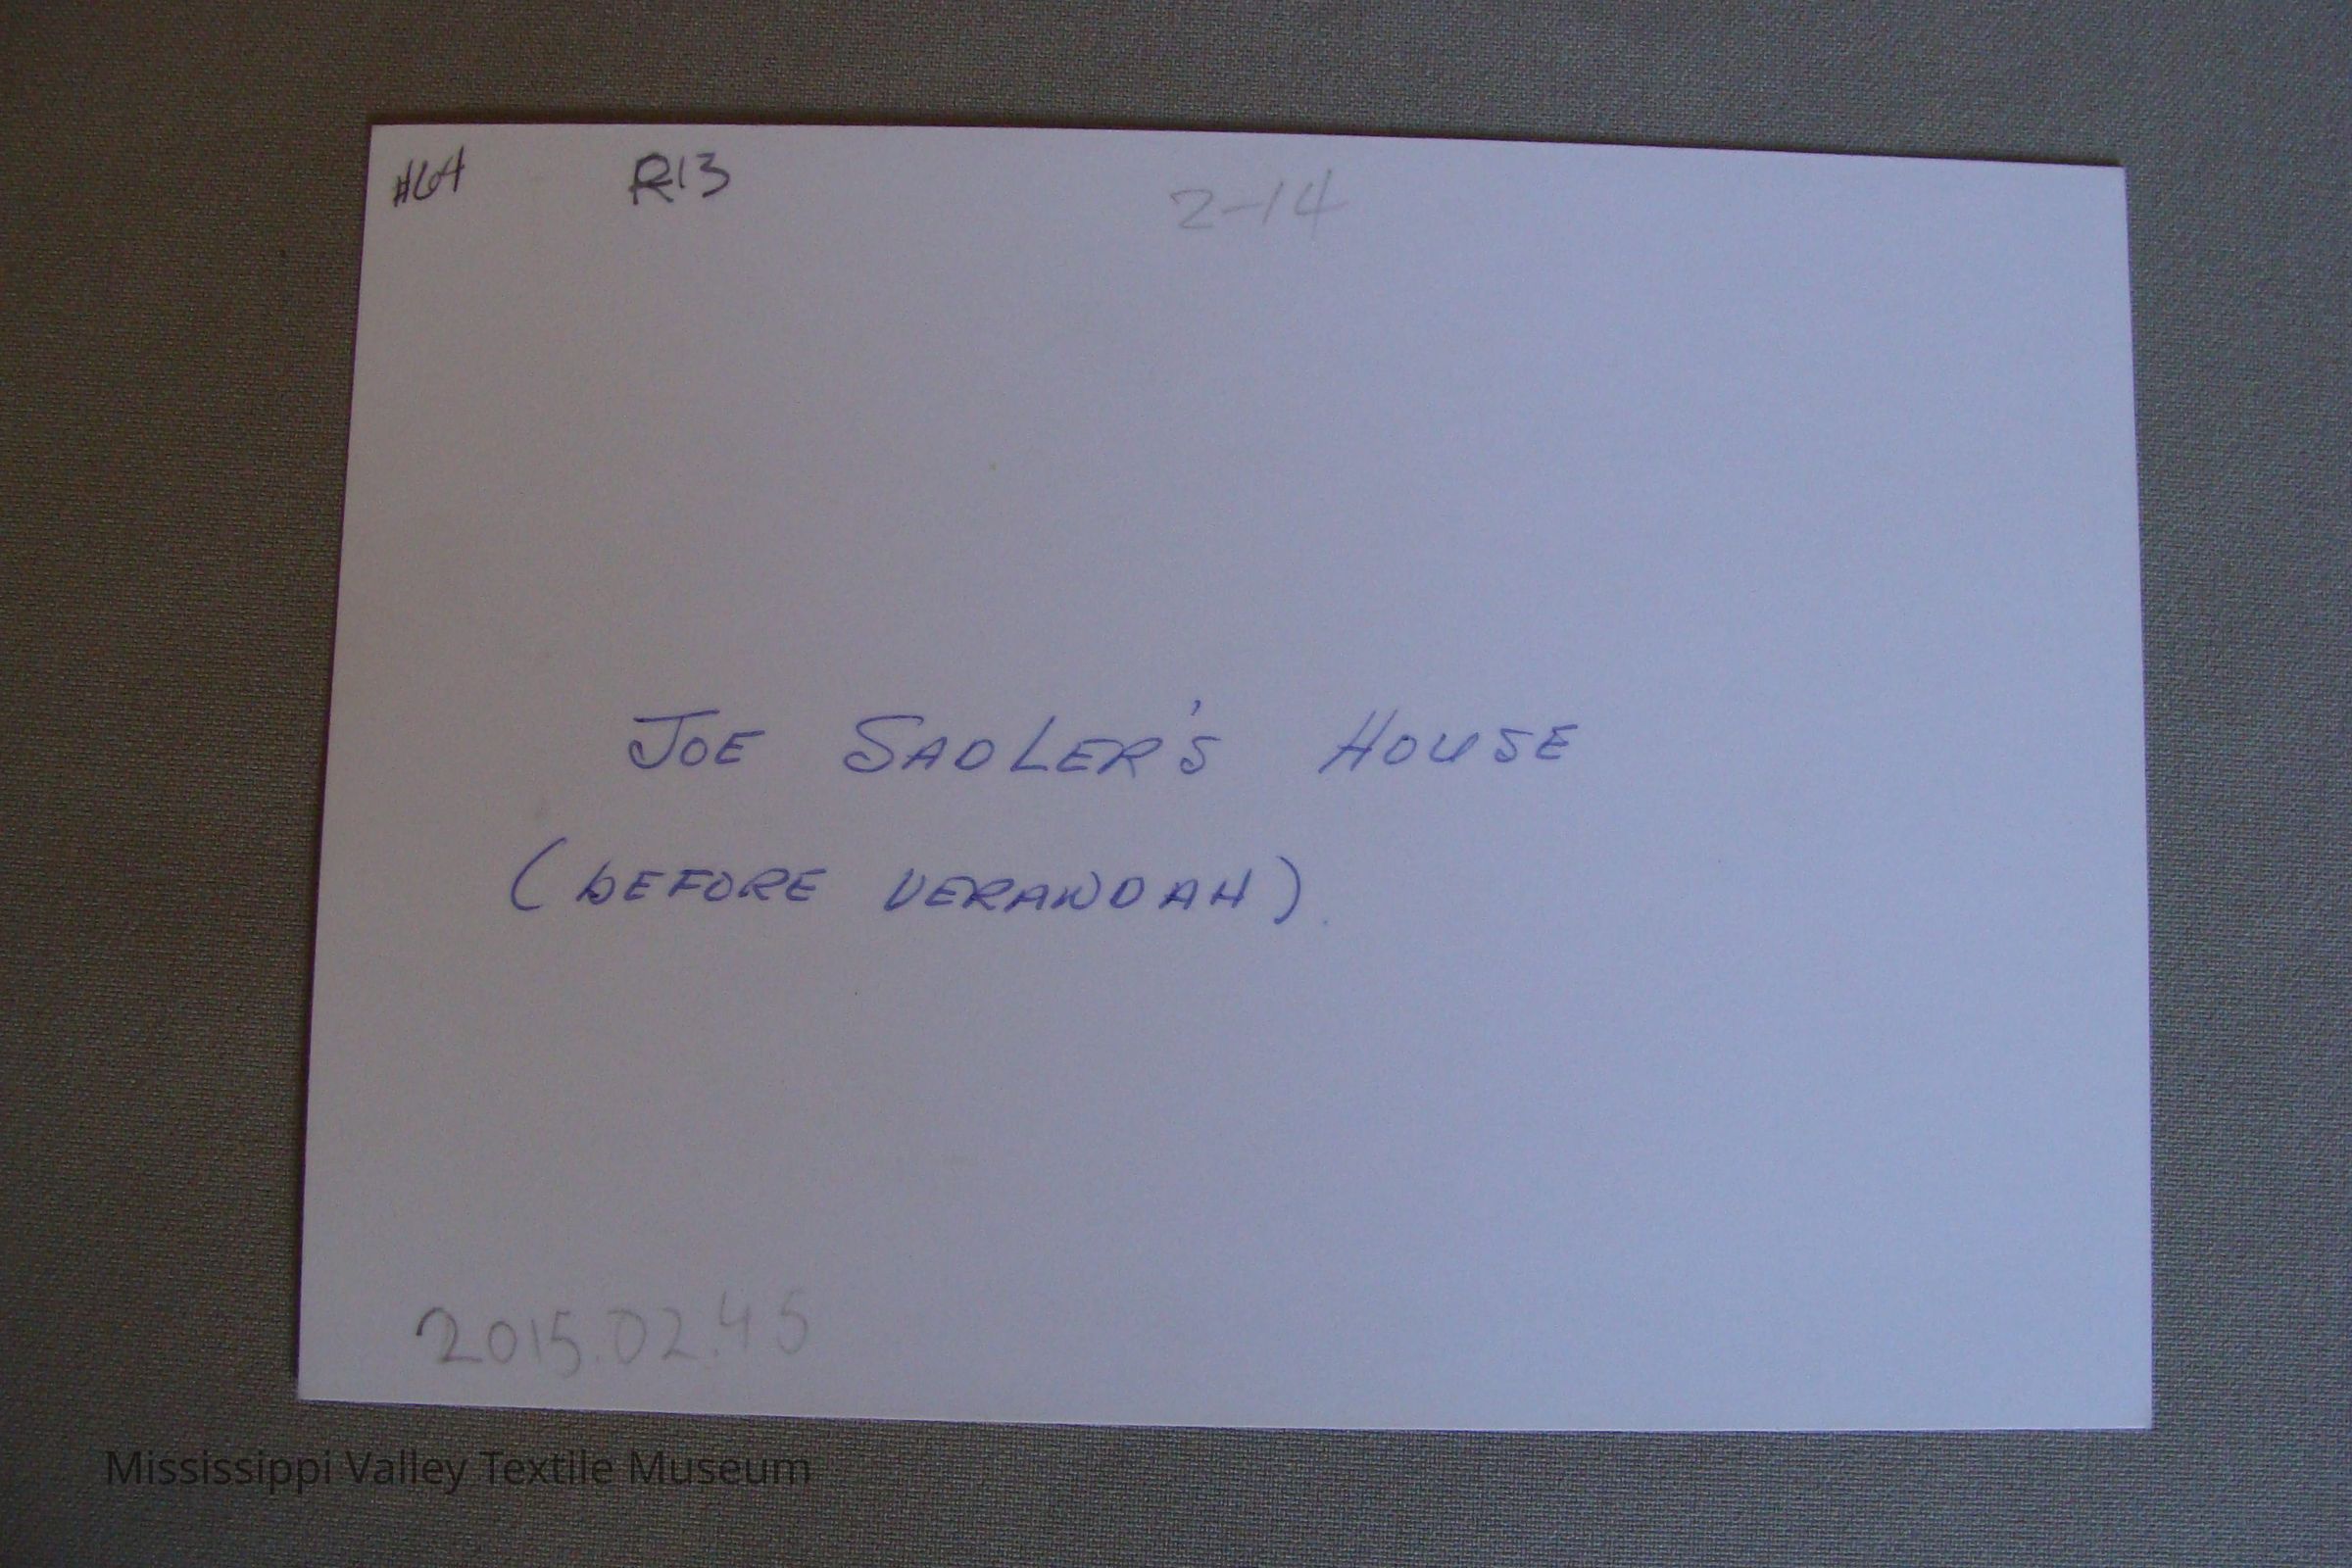 #64 R13 2-14
JOE SADLER'S HOUSE
(BEFORE VERANDAH).
2015.02.45
Mississippi Valley Textile Museum